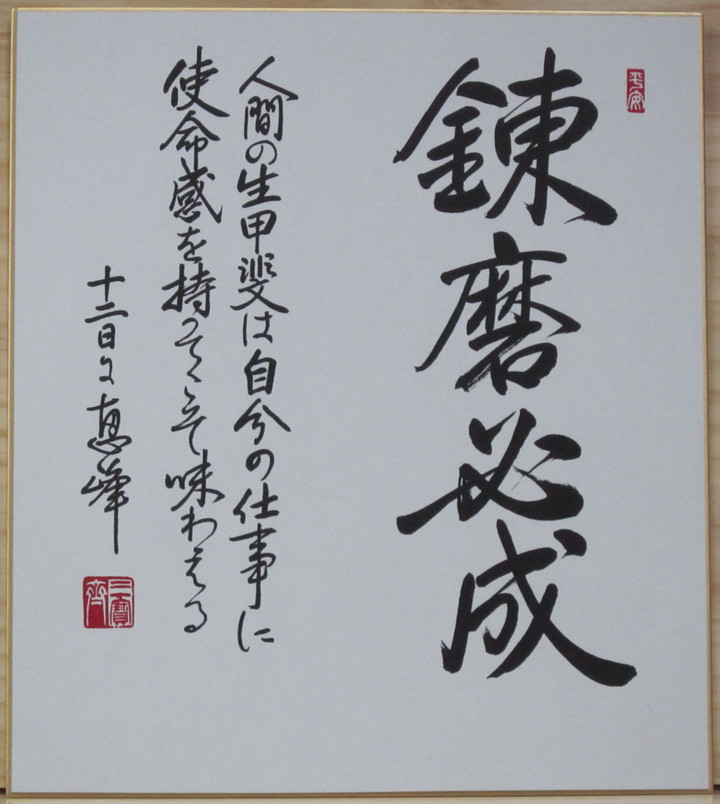 錬磨必成
人間の生甲斐は自分の仕事に
使命感を持ってこそ味わえる
十二日に 恵峰
平安
三寶齊